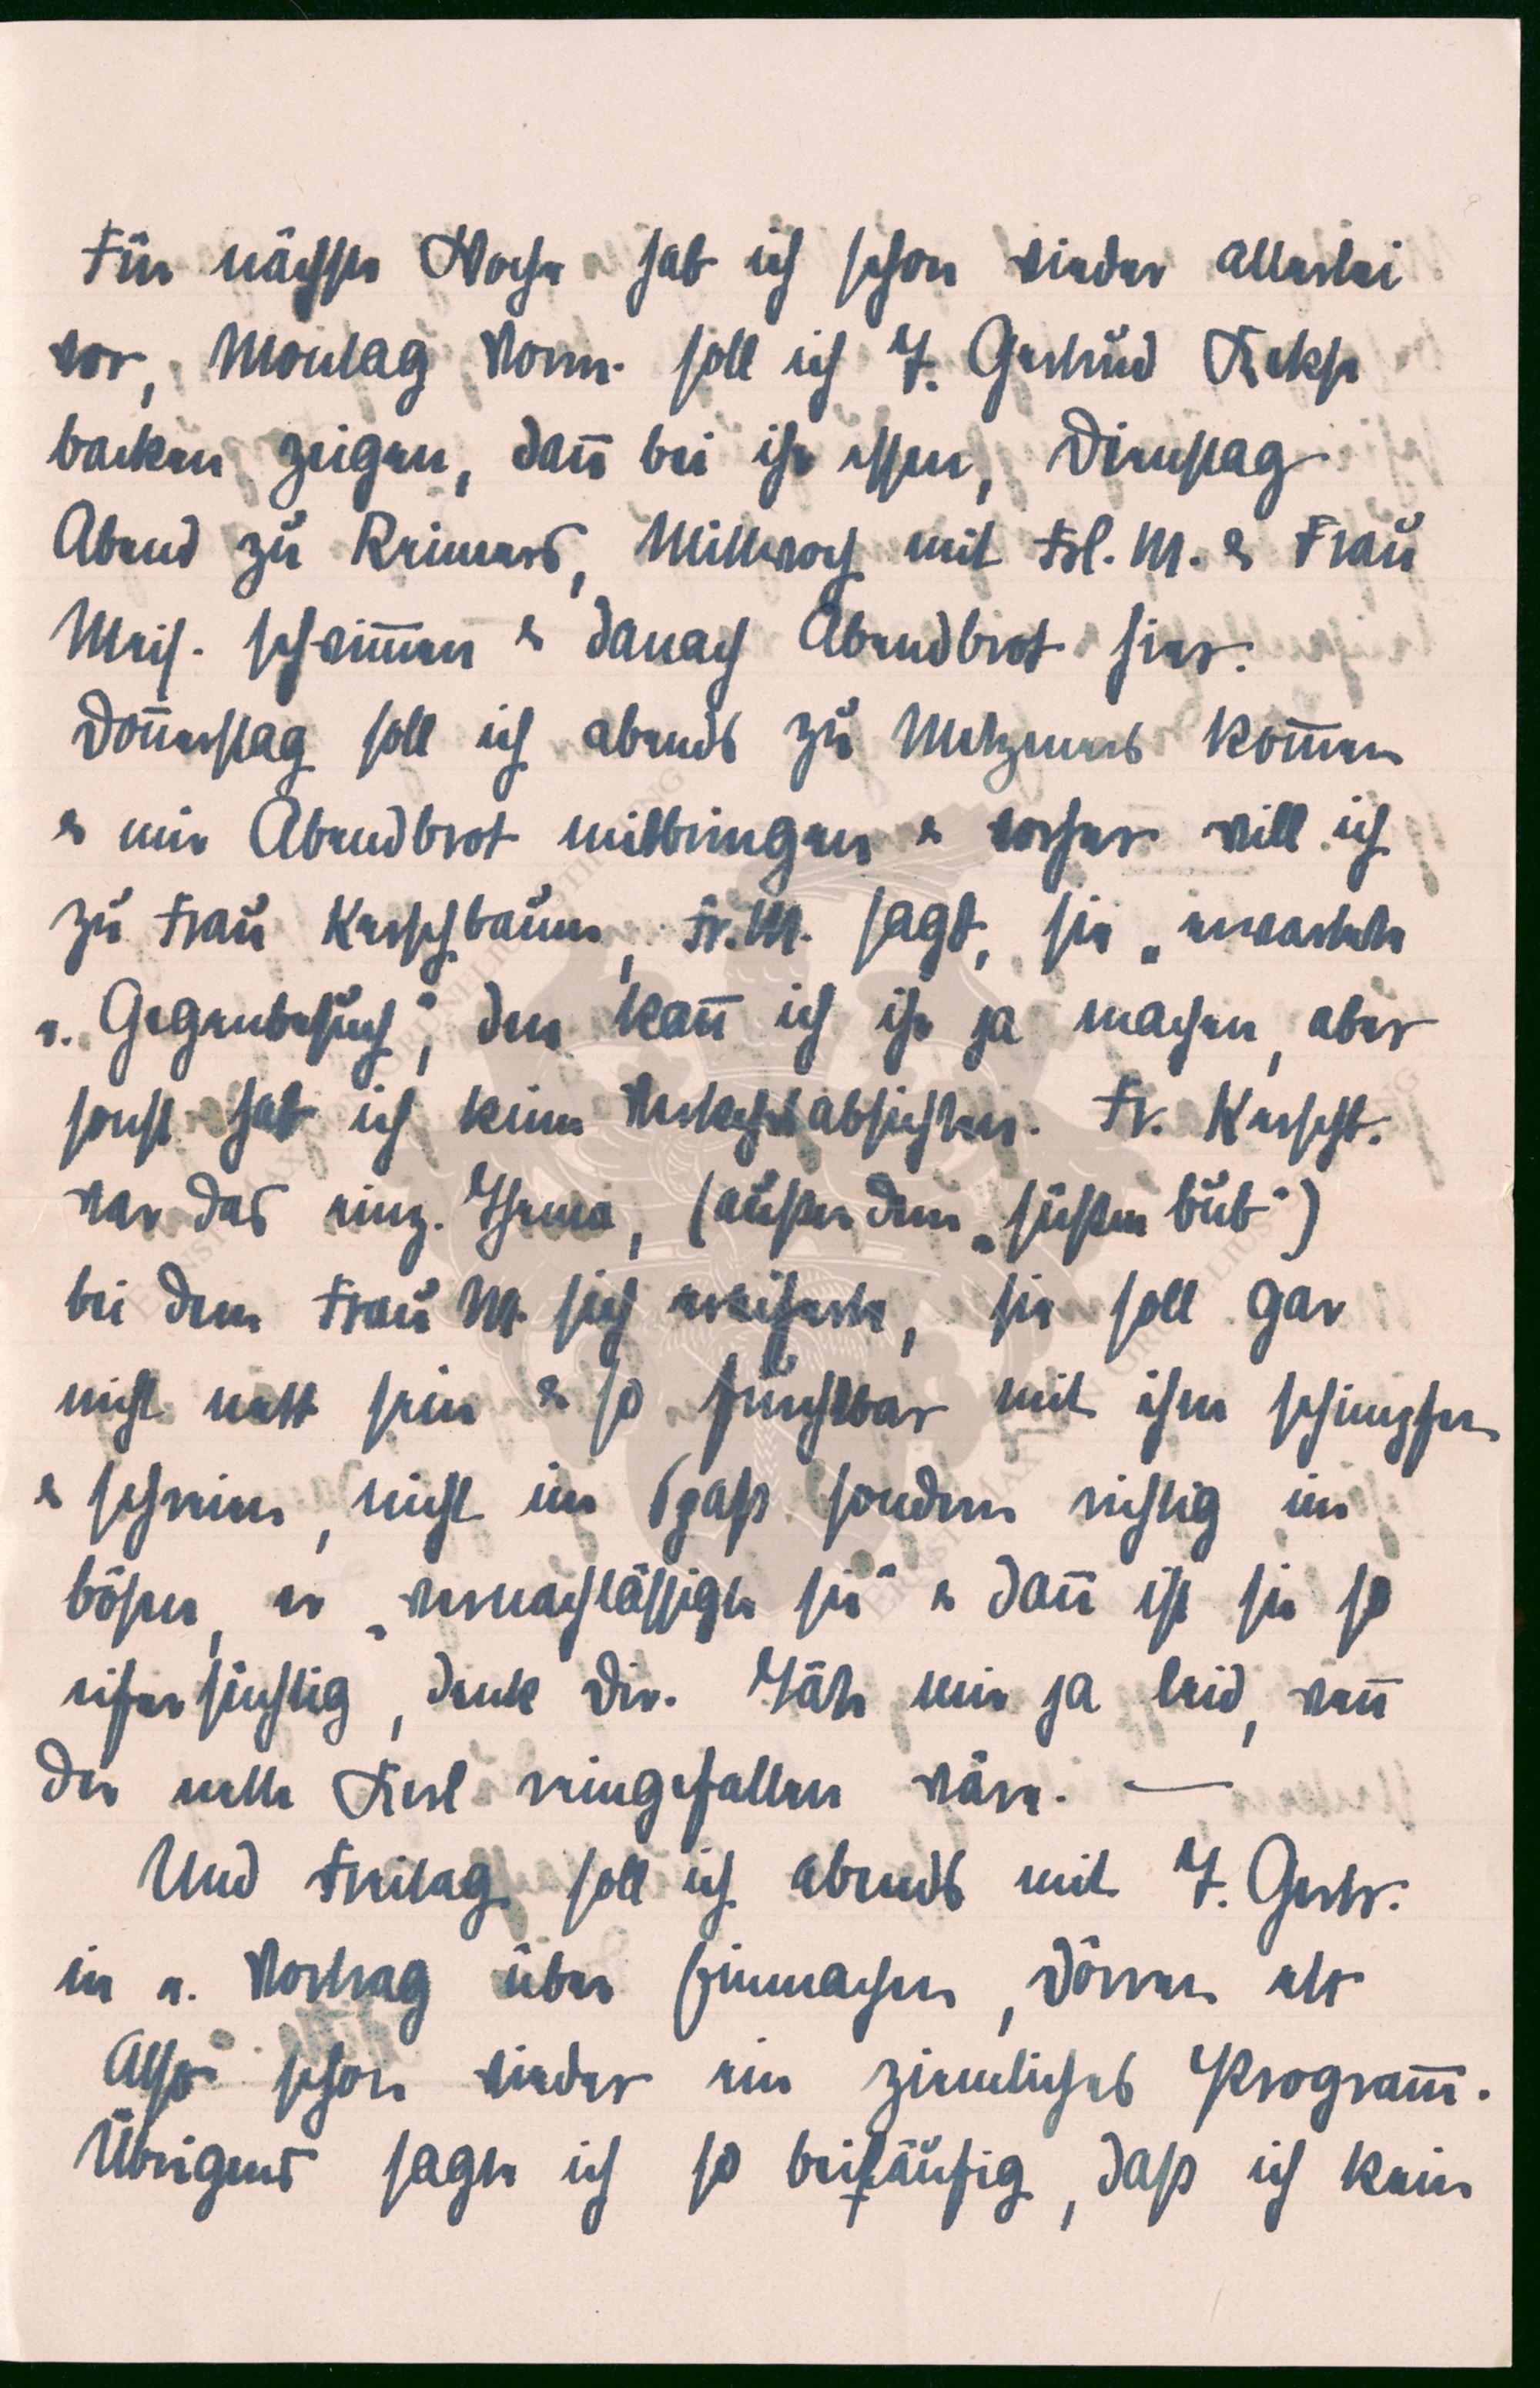 Für nächste Woche hab ich schon wieder allerlei
vor, Montag Vorm. soll ich T. Gertrud Kekse
backen zeigen, dan̄ bei ihr essen, Dienstag
Abend zu Reimers, Mittwoch mit Frl. M. & Frau
Meih. schwim̄en & danach Abendbrot hier.
Don̄erstag soll ich abends zu Metzeners kom̄en
& mir Abendbrot mitbringen & vorher will ich
zu Frau Kerschbaum, Fr. M. sagt, sie „erwartete
e. Gegenbesuch", den kan̄ ich ihr ja machen, aber
sonst hab ich keine Verkehrsabsichten. Fr. Kerschb.
war das einz. Thema, (außer dem „süßen bub")
bei dem Frau M. sich ereiferte, sie soll gar
nicht nett sein & so furchtbar mit ihm schimpfen
& schreien, nicht im Spaß sondern richtig im
bösen, er „vernachlässigte sie" & dan̄ ist sie so
eifersüchtig, denk Dir. Täte mir ja leid, wen̄
der nette Kerl reingefallen wäre. —
Und Freitag soll ich abends mit T. Gertr.
in e. Vortrag über Einmachen, Dörren etc
Also schon wieder ein ziemliches Program̄.
Übrigens sagte ich so beiläufig, daß ich kein